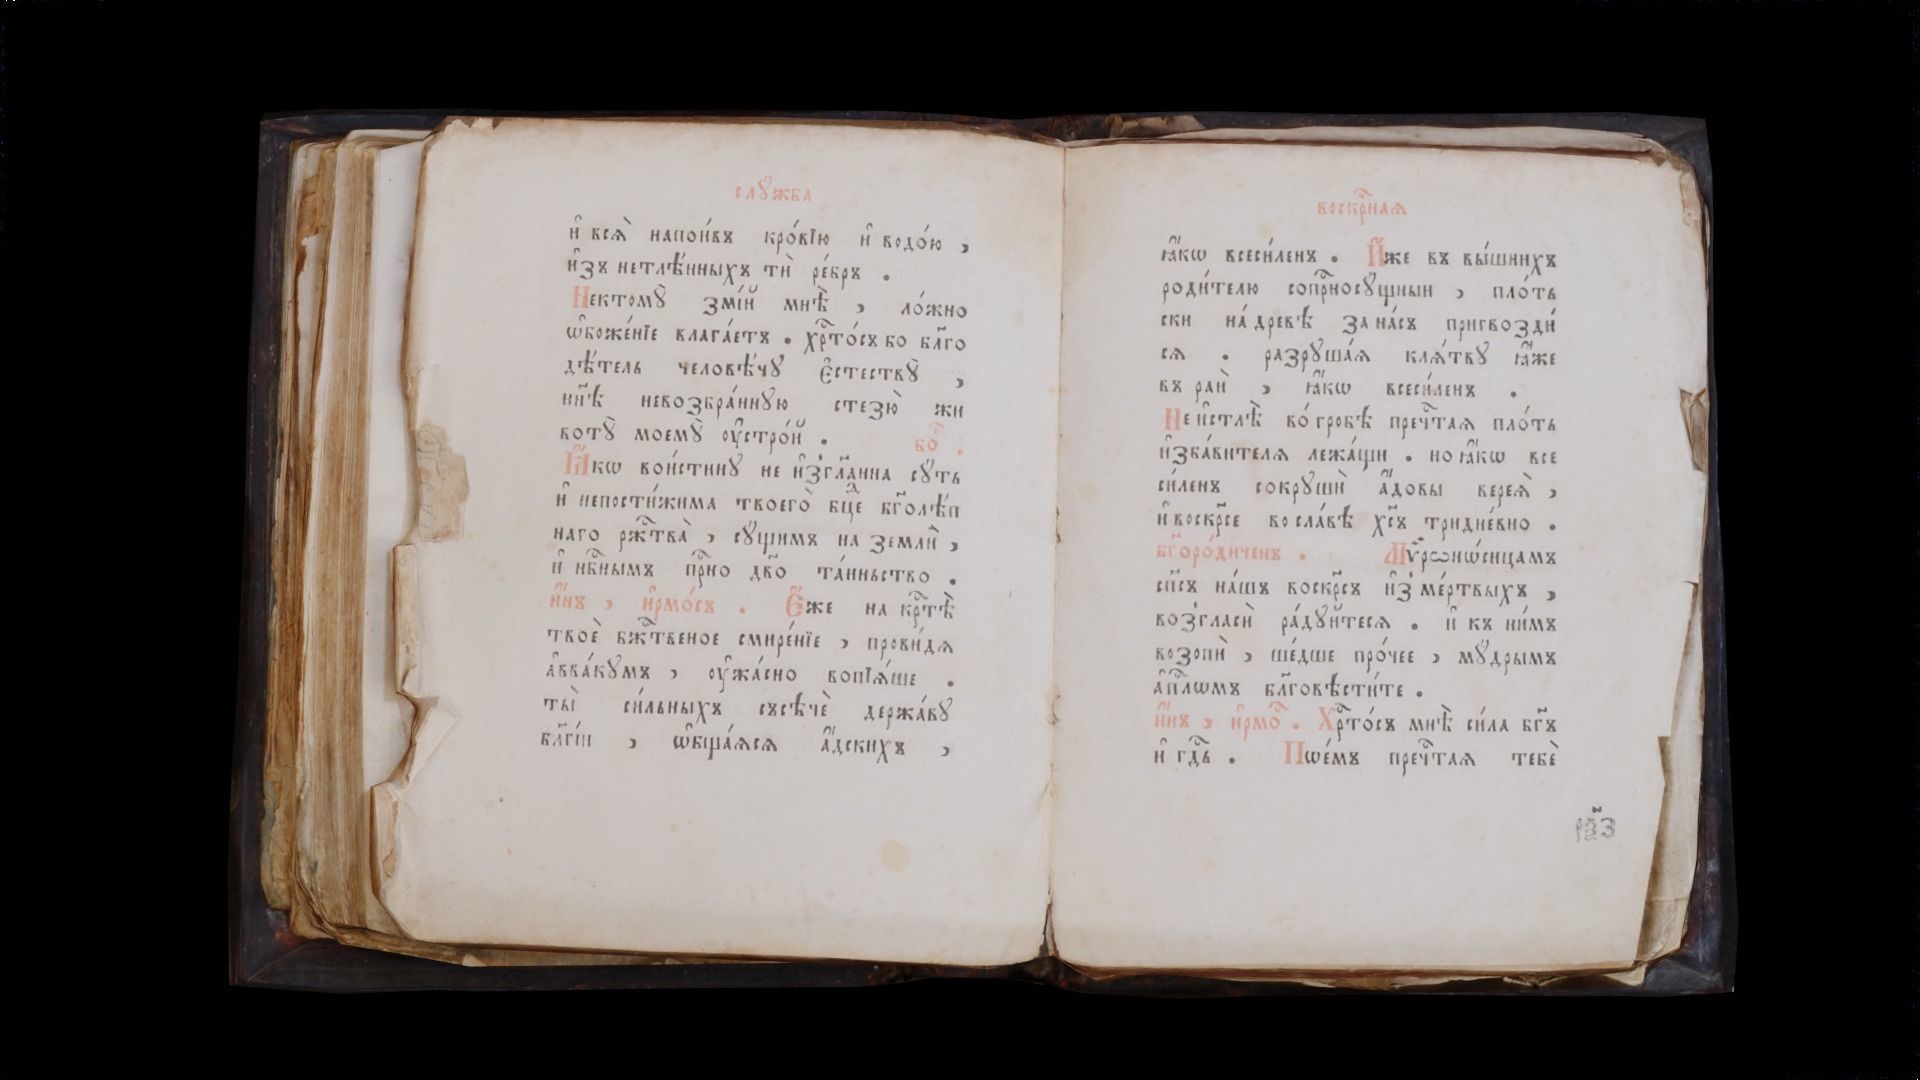 слꙋ́жба
и҆ всѧ̀ напои́въ кро́вїю и҆ водо́ю ,
и҆зъ нетлѣ́нныхъ тѝ ре́бръ .
Нектомꙋ̀ змі́й мнѣ̀ , ло́жно
ѡ҆боже́нїе влага́етъ . хрⷭ҇то́съ бо бл҃го
дѣ́тель человѣ́чꙋ є҆стествꙋ̀ ,
нн҃ѣ невозбра́ннꙋю стезю̀ жи
вотꙋ̀ моемꙋ̀ оу҆стро́й .
бо҇ .
Ꙗ҆́кѡ вои́стинꙋ не и҆згл҃анна сꙋ́ть
и҆ непости́жима твоего̀ бцⷣе бг҃олѣ́п
наго ржⷭ҇тва̀ , сꙋ́щимъ на землѝ ,
и҆ нбⷭ҇нымъ прⷭ҇но дв҃о та́иньство .
и҆́нъ , і҆рмо́съ . Є҆́же на крⷭ҇тѣ̀
твоѐ бжⷭ҇твеное смире́нїе , прови́дѧ
а҆вва́кꙋмъ , оу҆жа́сно вопїѧ́ше .
ты̀ си́льныхъ съсѣчѐ держа́вꙋ
бл҃гі́и , ѡ҆бща́ѧсѧ а҆́дскихъ ,
воскрⷭ҇наѧ
ꙗ҆́кѡ всеси́ленъ . И҆́же въ вы́шнихъ
роди́телю сопрⷭ҇носꙋ́щныи , пло́ть
ски на́ древѣ за на́съ пригвозди́
сѧ . разрꙋша́ѧ клѧ́твꙋ ꙗ҆́же
въ раѝ , ꙗ҆́кѡ всеси́ленъ .
Не и҆стлѣ̀ во́ гробѣ пречⷭ҇таѧ пло́ть
и҆зба́вителѧ лежа́щи . но ꙗ҆́кѡ все
си́ленъ сокрꙋшѝ а҆́довы вереѧ̀ ,
и҆ воскрⷭ҇се во сла́вѣ хс҃ъ тридне́вно .
бг҃оро́диченъ . Мѵ́рѡнѡ́сицамъ
сп҃съ на́шъ воскрⷭ҇съ и҆з̾ ме́ртвыхъ ,
возгласѝ ра́дꙋйтесѧ . и҆ къ ни́мъ
возопѝ , ше́дше про́чее , мꙋ́дрымъ
а҆пⷭ҇лѡмъ бл҃говѣсти́те .
и҆́нъ , і҆рмоⷭ҇ . Хрⷭ҇то́съ мнѣ̀ си́ла бг҃ъ
и҆ гдⷭ҇ь . Пѡе́мъ пречⷭ҇таѧ тебѐ